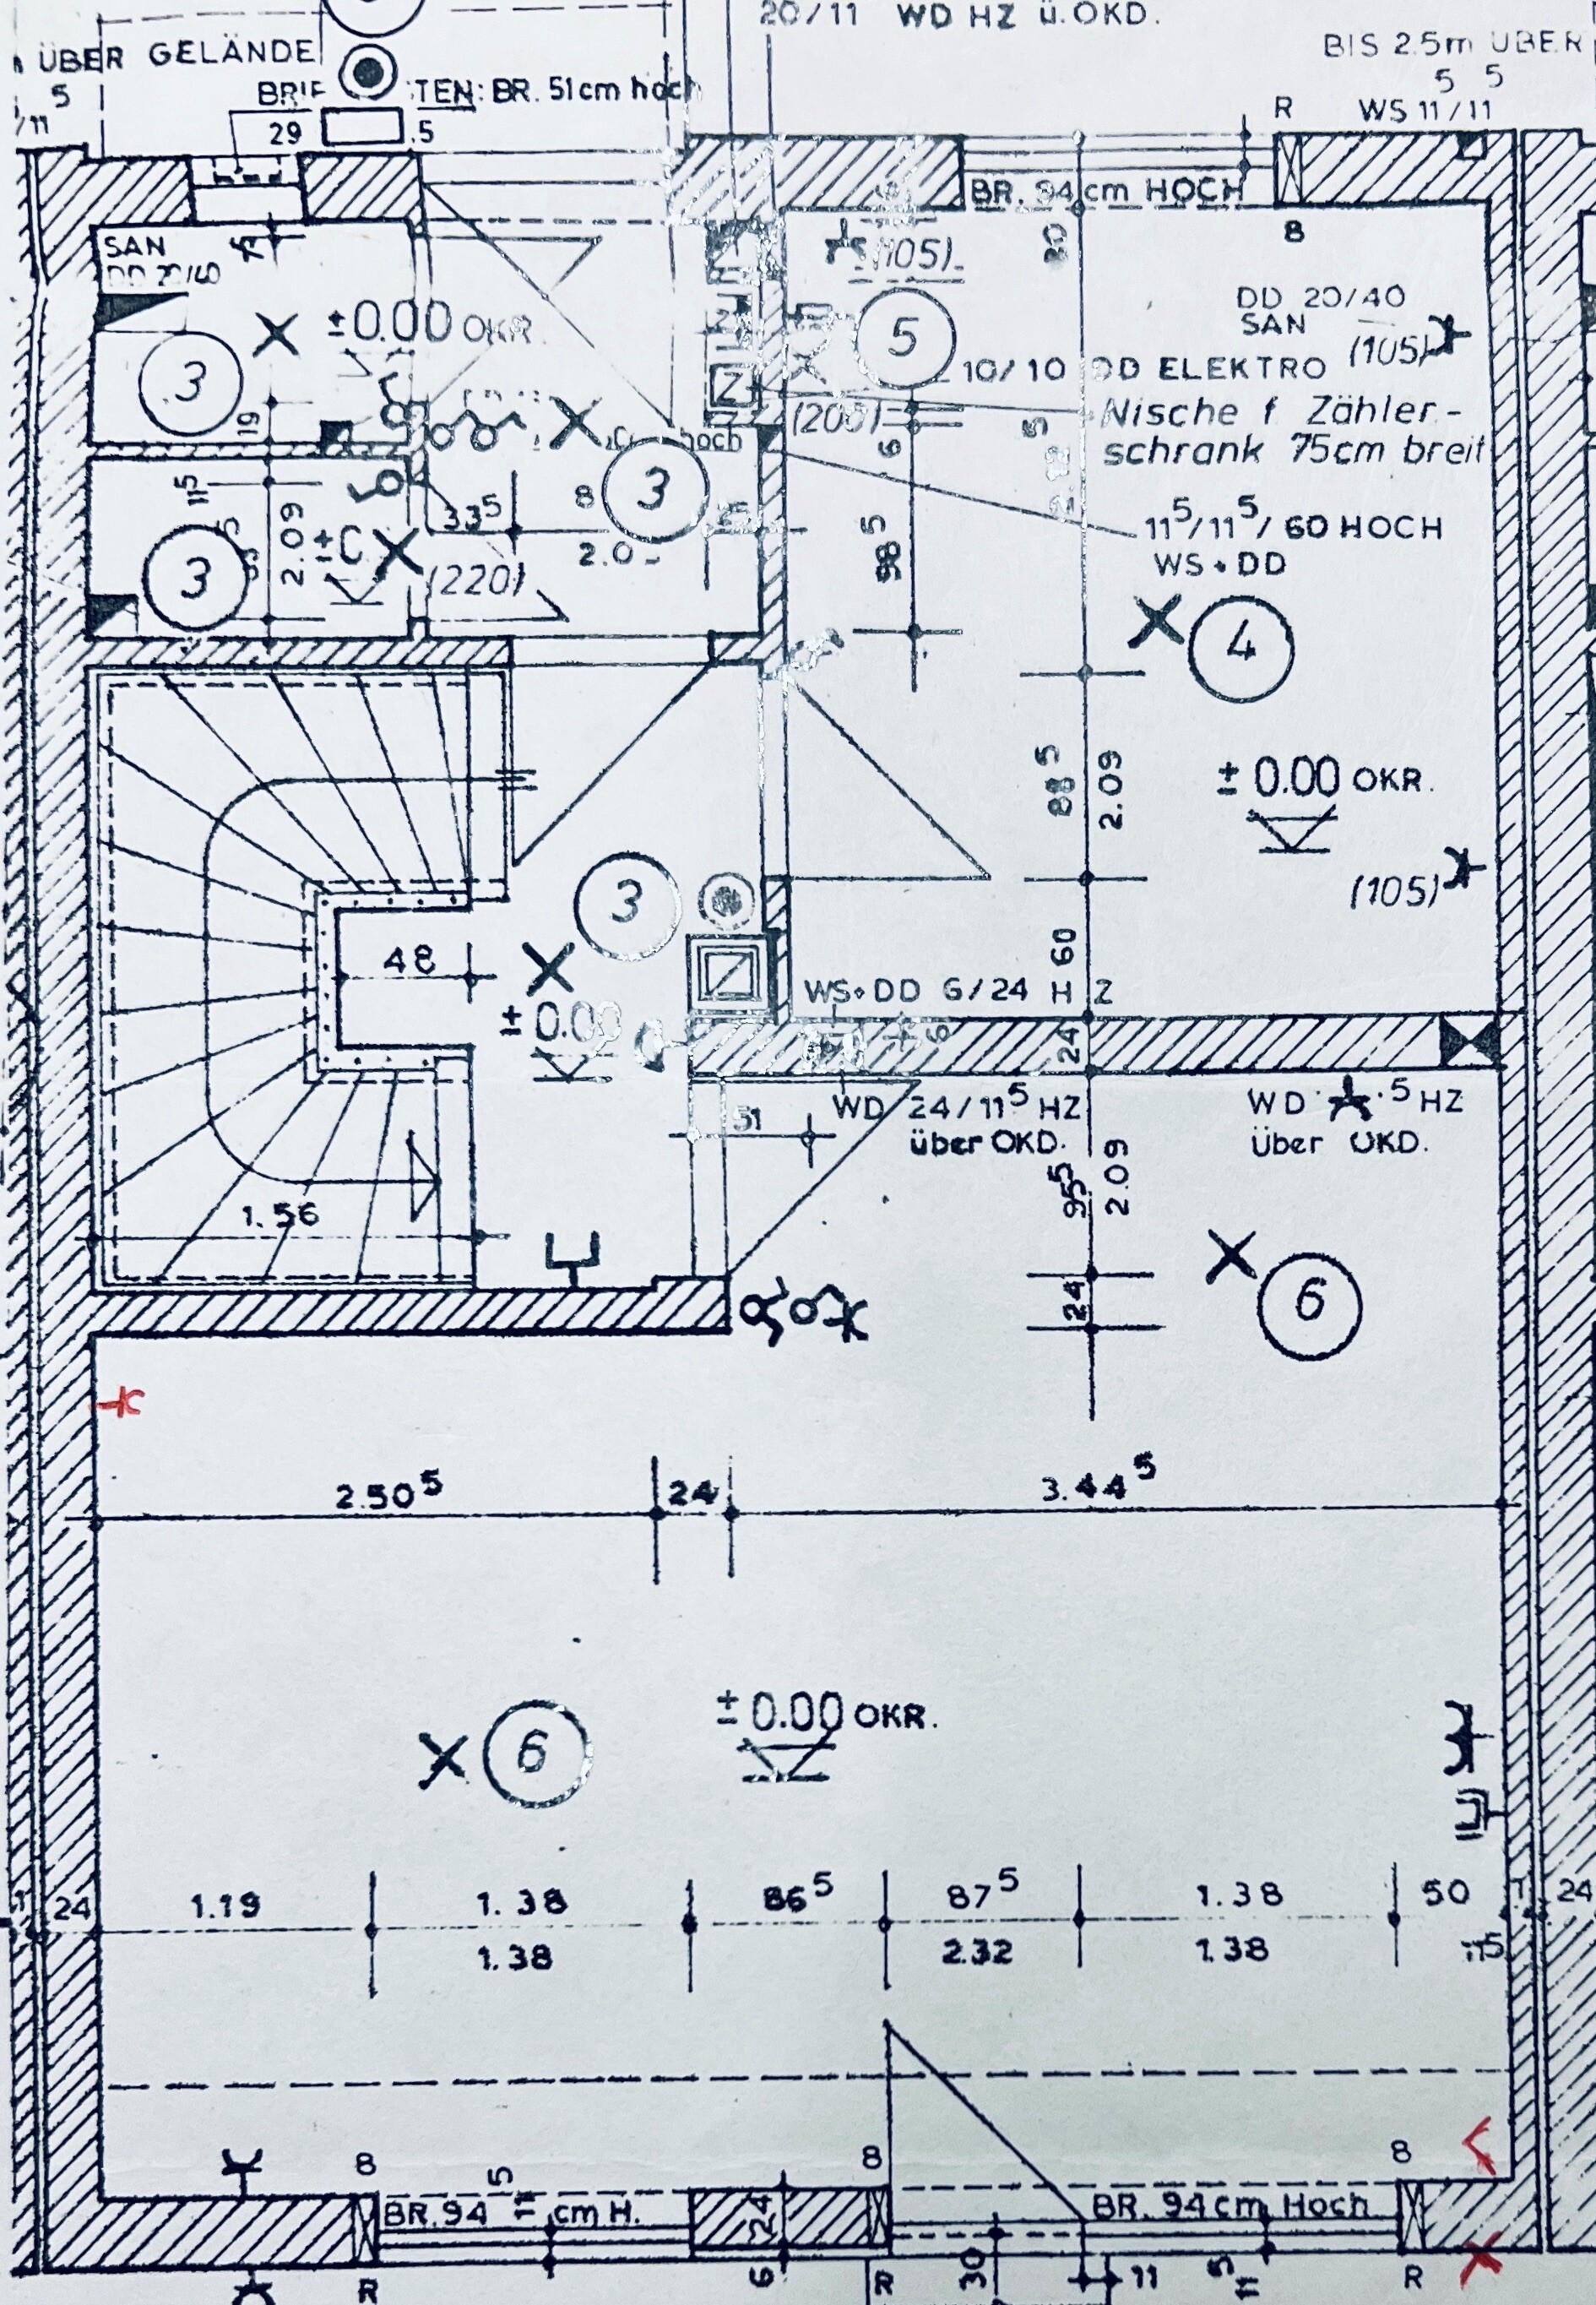 20/11 WD HZ ü.OKD.
ÜBER GELÄNDE
BIS 2.5m ÜBER
5
5 5
TEN: BR. 51cm hoch
R
WS 11/11
/11
29
.5
BR. 94 cm HOCH
8
SAN
DD 20/40
(105)
80
DD 20/40
SAN
±0.00 OKR.
5
(105)
3
10/10 DD ELEKTRO
Z
(200)
Nische f Zähler-
schrank 75cm breit
19
hoch
6
3
11 5
33 5
8
11 5/11 5/60 HOCH
WS+DD
98 5
2.09
3
(220)
2.0
4
88 5
2.09
±0.00 OKR.
3
(105)
48
60
Z
WS+DD 6/24 HZ
±0.00
6
24
51
WD 24/11 5 HZ
über OKD.
WD 5 HZ
Über OKD.
95 5
2.09
1.56
24
6
2.50 5
24
3.44 5
6
±0.00 OKR.
24
1.19
1.38
86 5
87 5
1.38
50
24
1.38
2.32
1.38
11 5
8
8
8
BR. 94 cm H.
11 5
24
BR. 94 cm Hoch
R
6
R
30
11
11 5
R